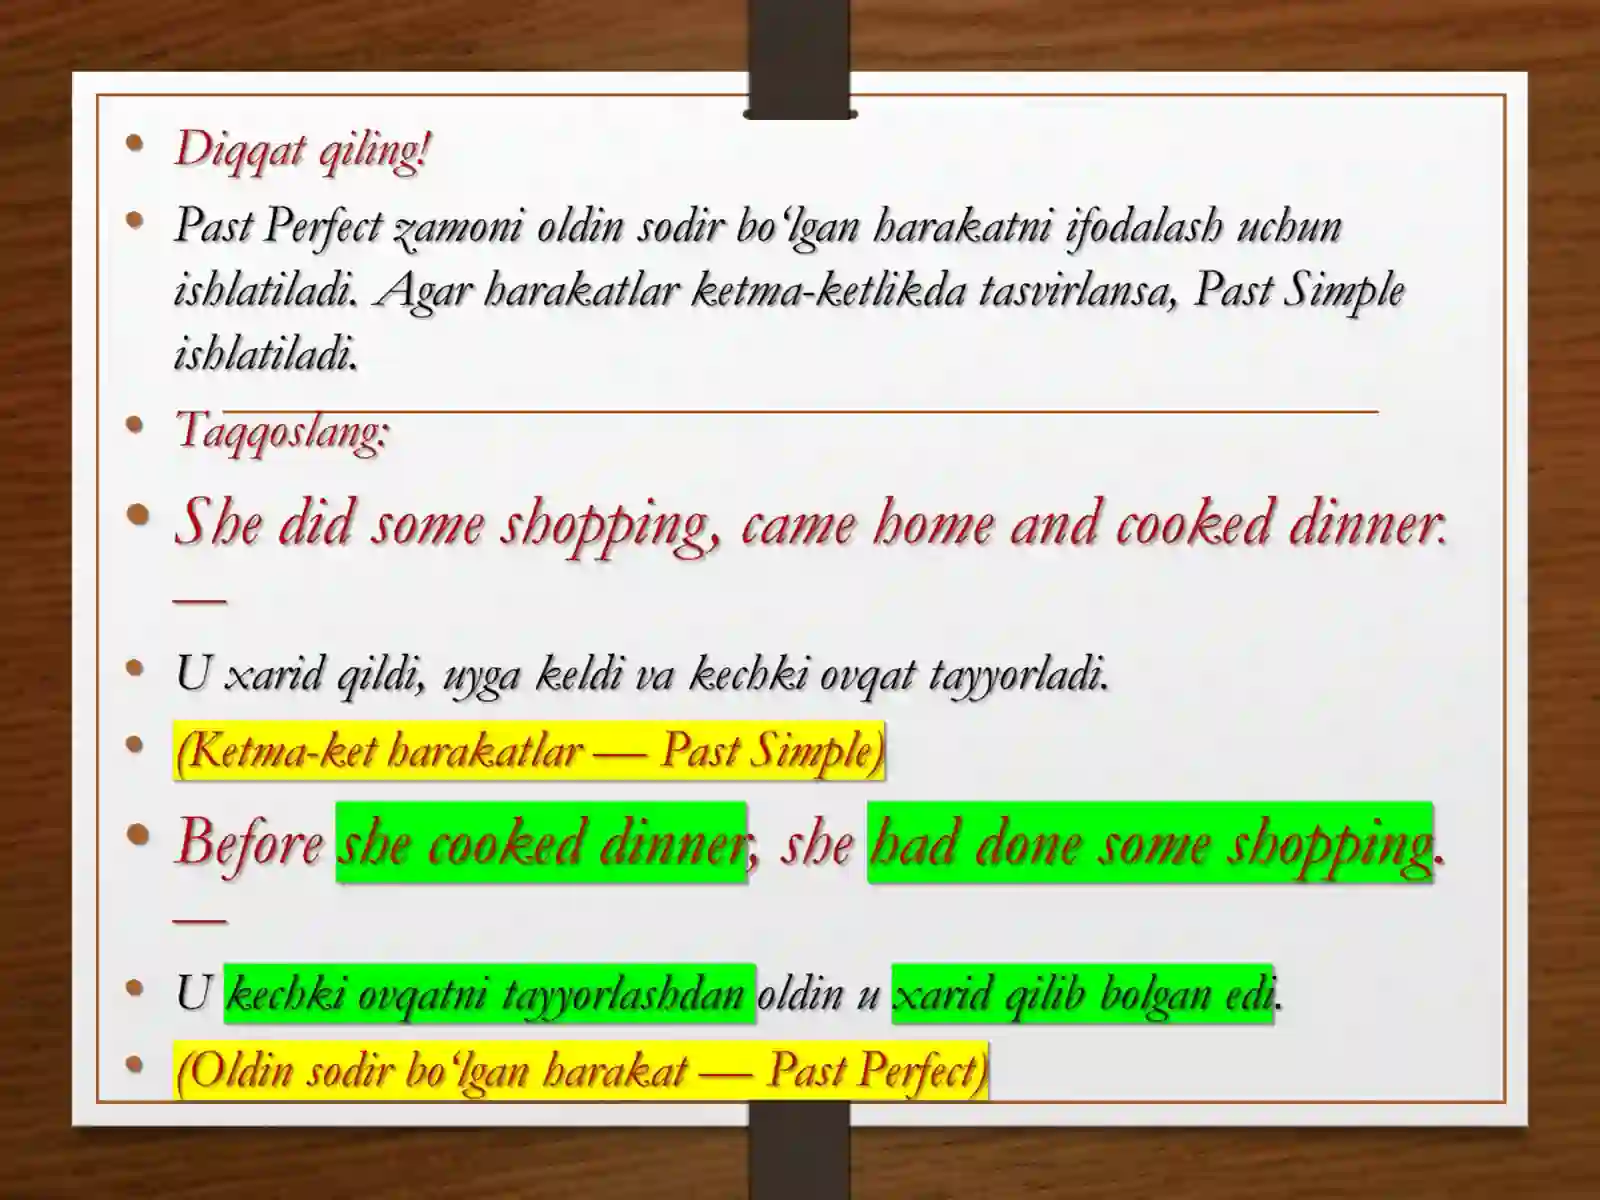 • Diqqat qiling!
• Past Perfect zamoni oldin sodir bo‘lgan harakatni ifodalash uchun
ishlatiladi. Agar harakatlar ketma-ketlikda tasvirlansa, Past Simple
ishlatiladi.
• Taqqoslang:
• She did some shopping, came home and cooked dinner.
—
• U xarid qildi, uyga keldi va kechki ovqat tayyorladi.
• (Ketma-ket harakatlar — Past Simple)
• Before she cooked dinner, she had done some shopping.
—
• U kechki ovqatni tayyorlashdan oldin u xarid qilib bolgan edi.
• (Oldin sodir bo‘lgan harakat — Past Perfect)